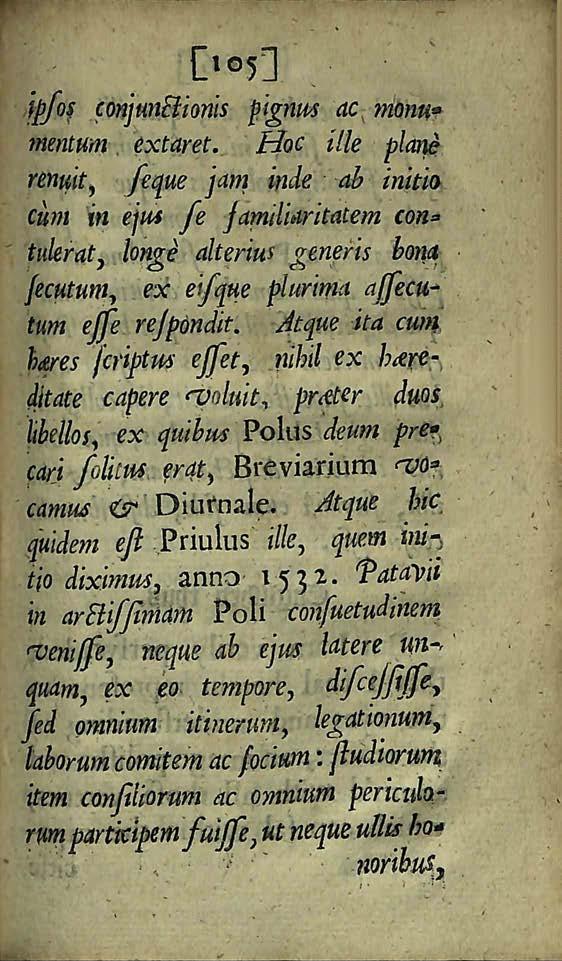 [105]
ipſos conjunctionis pignus ac monu-
mentum extaret. Hoc ille planè
renuit, ſeque jam inde ab initio
cùm in ejus ſe familiaritatem con-
tulerat, longè alterius generis bona
ſecutum, ex eiſque plurima aſſecu-
tum eſſe reſpondit. Atque ita cum
hæres ſcriptus eſſet, nihil ex hære-
ditate capere voluit, præter duos
libellos, ex quibus Polus deum pre-
cari ſolitus erat, Breviarium vo-
camus & Diurnale. Atque hic
quidem eſt Priulus ille, quem ini-
tio diximus, anno 1532. Patavii
in arctiſſimam Poli conſuetudinem
veniſſe, neque ab ejus latere un-
quam, ex eo tempore, diſceſſiſſe,
ſed omnium itinerum, legationum,
laborum comitem ac ſocium : ſtudiorum
item conſiliorum ac omnium periculo-
rum participem fuiſſe, ut neque ullis ho-
noribus,